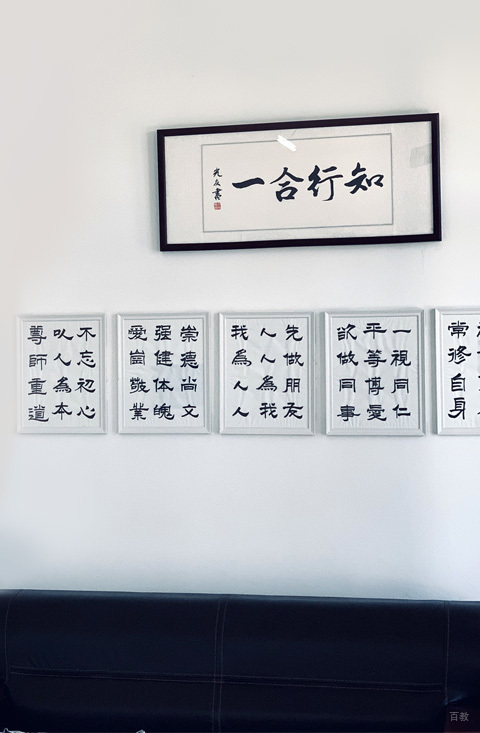 知行合一
光友書
一視同仁
平等博愛
欲做同事
先做朋友
人人為我
我為人人
崇德尚文
强健体魄
愛崗敬業
不忘初心
以人為本
尊師重道
常修自身
百教